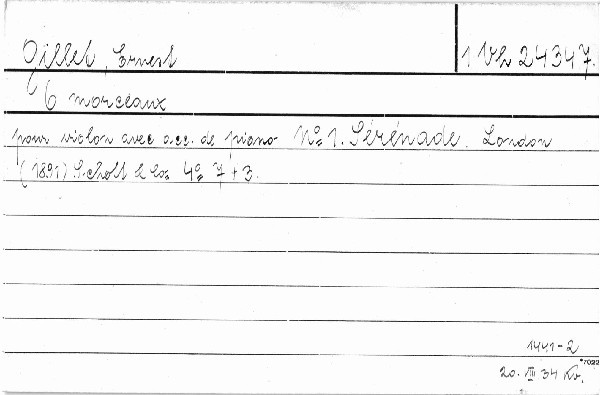 Gillet, Ernest
1 Vh 24347.
6 morceaux
pour violon avec acc. de piano No 1. Sérénade. London
(1891) Schott & Co. 4o 7 + 3.
1441-2
*7022
20. III 34 Kv.